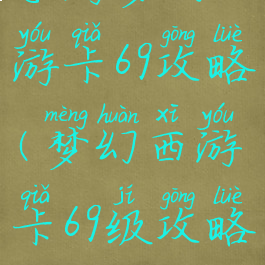 yóu qiǎ gōng lüè
游卡69攻略
mèng huàn xī yóu
(梦幻西游
qiǎ jí gōng lüè
卡69级攻略